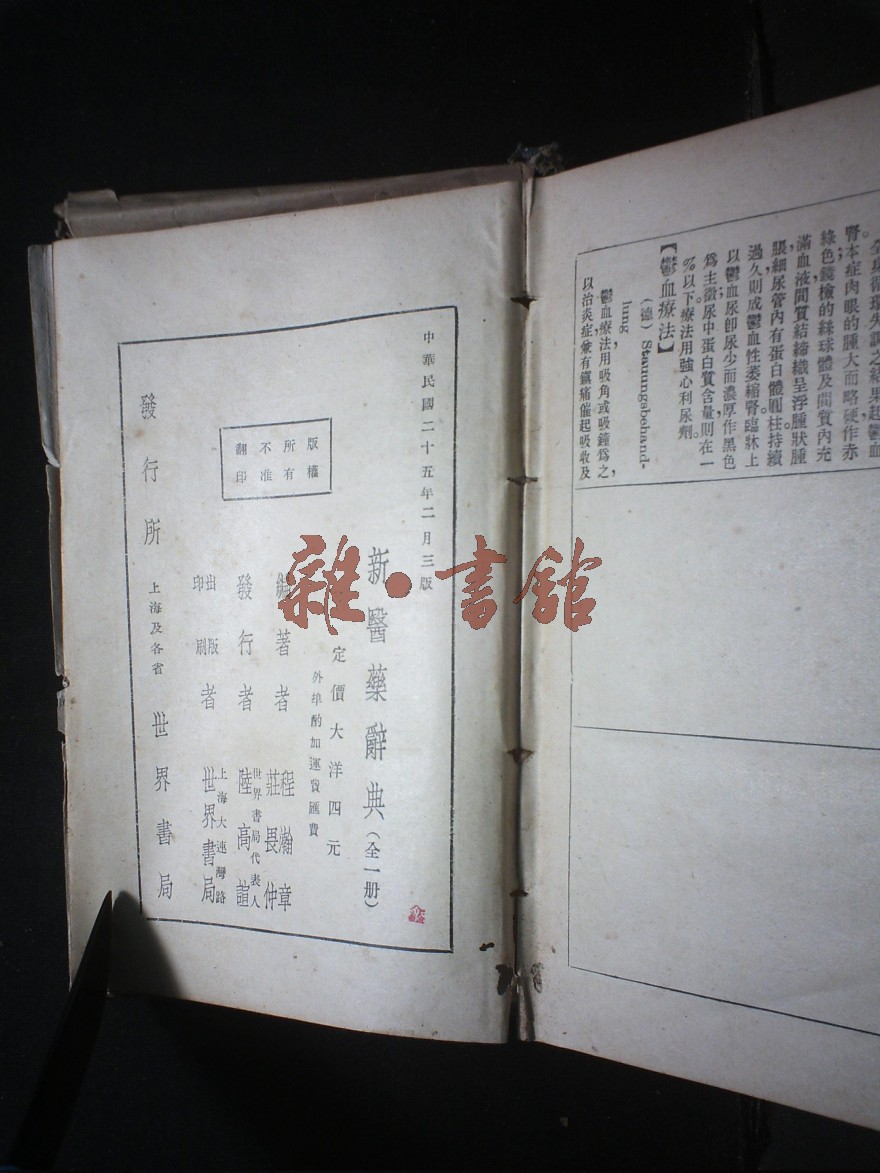 腎本症肉眼的腫大而略硬作赤
綠色鏡檢的絲球體及間質內充
滿血液間質結締織呈浮腫狀腫
脹細尿管內有蛋白體圓柱持續
過久則成鬱血性萎縮腎臨牀上
以鬱血尿卽尿少而濃厚作黑色
爲主徵尿中蛋白質含量則在一
%以下療法用強心利尿劑。
【鬱血療法】
(德) Stauungsbehand-
lung
鬱血療法用吸角或吸鐘爲之，
以治炎症兼有鎭痛催起吸收及
中華民國二十五年二月三版
新醫藥辭典(全一册)
定價大洋四元
外埠酌加運費匯費
版權所有
不准翻印
編著者 程瀚章 莊畏仲
發行者 陸高誼
世界書局代表人
出版印刷者 世界書局
上海大連灣路
發行所 上海及各省 世界書局
雜·書館